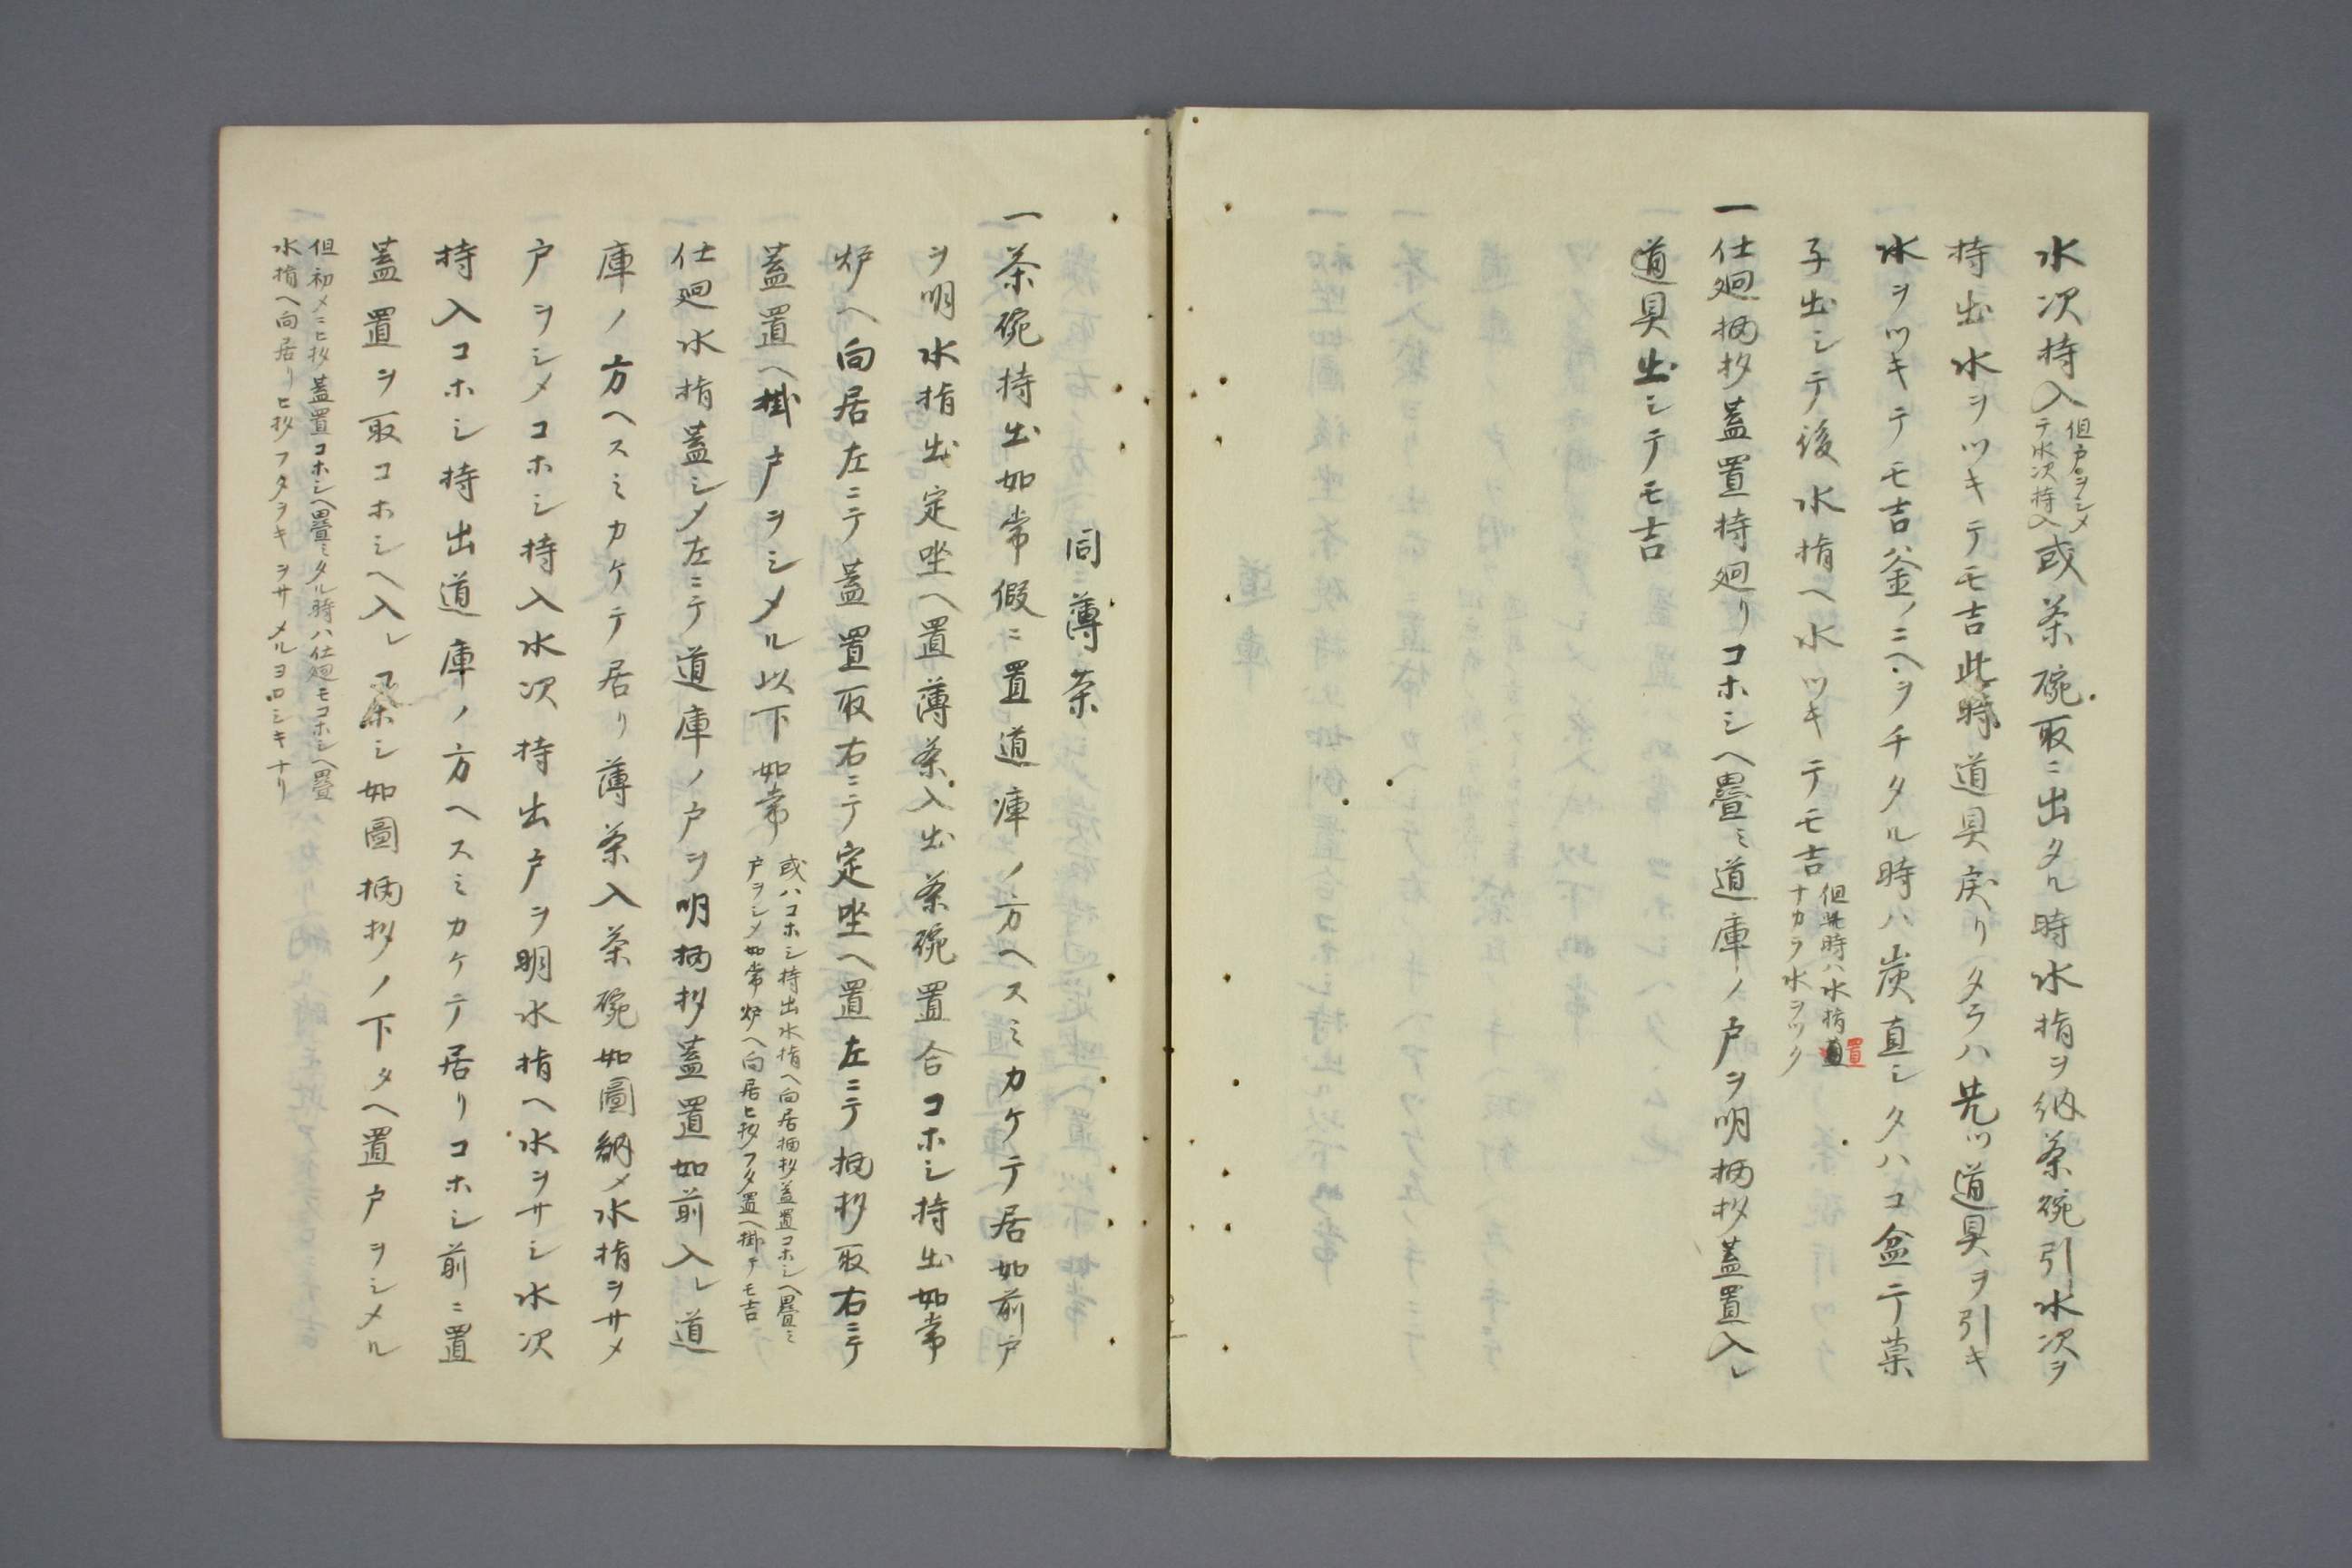 水次持入但戸ヲシメテ水次持入或茶碗取ニ出タル時水指ヲ納茶碗引水次ヲ
持出水ヲツキテモ吉此時道具戻リタラハ先ツ道具ヲ引キ
水ヲツキテモ吉釜ノニヘヲチタル時ハ炭直シタハコ盆ニテ菓
子出シテ後水指ヘ水ツキテモ吉但此時ハ水指置ナカラ水ヲツク
一仕廻柄杓蓋置持廻リコホシヘ疊ミ道庫ノ戸ヲ明柄杓蓋置入レ
道具出シテモ吉
同薄茶
一茶碗持出如常假ニ置道庫ノ方ヘスミカケテ居如前戸
ヲ明水指出定坐ヘ置薄茶入出茶碗置合コホシ持出如常
炉ヘ向居左ニテ蓋置取右ニテ定坐ヘ置左ニテ柄杓取右ニテ
蓋置ヘ掛戸ヲシメル以下如常或ハコホシ持出水指ヘ向居柄杓蓋置コホシヘ疊ミ戸ヲシメ如常炉ヘ向居ヒ杓フタ置ヘ掛テモ吉
仕廻水指蓋シメ左ニテ道庫ノ戸ヲ明柄杓蓋置如前入レ道
庫ノ方ヘスミカケテ居リ薄茶入茶碗如圖納メ水指ヲサメ
戸ヲシメコホシ持入水次持出戸ヲ明水指ヘ水ヲサシ水次
持入コホシ持出道庫ノ方ヘスミカケテ居リコホシ前ニ置
蓋置ヲ取コホシヘ入レコホシ如圖柄杓ノ下タヘ置戸ヲシメル
但初メニヒ杓蓋置コホシヘ疊ミタル時ハ仕廻モコホシヘ疊
水指ヘ向居リヒ杓フタヲキヲサメルヨロシキナリ